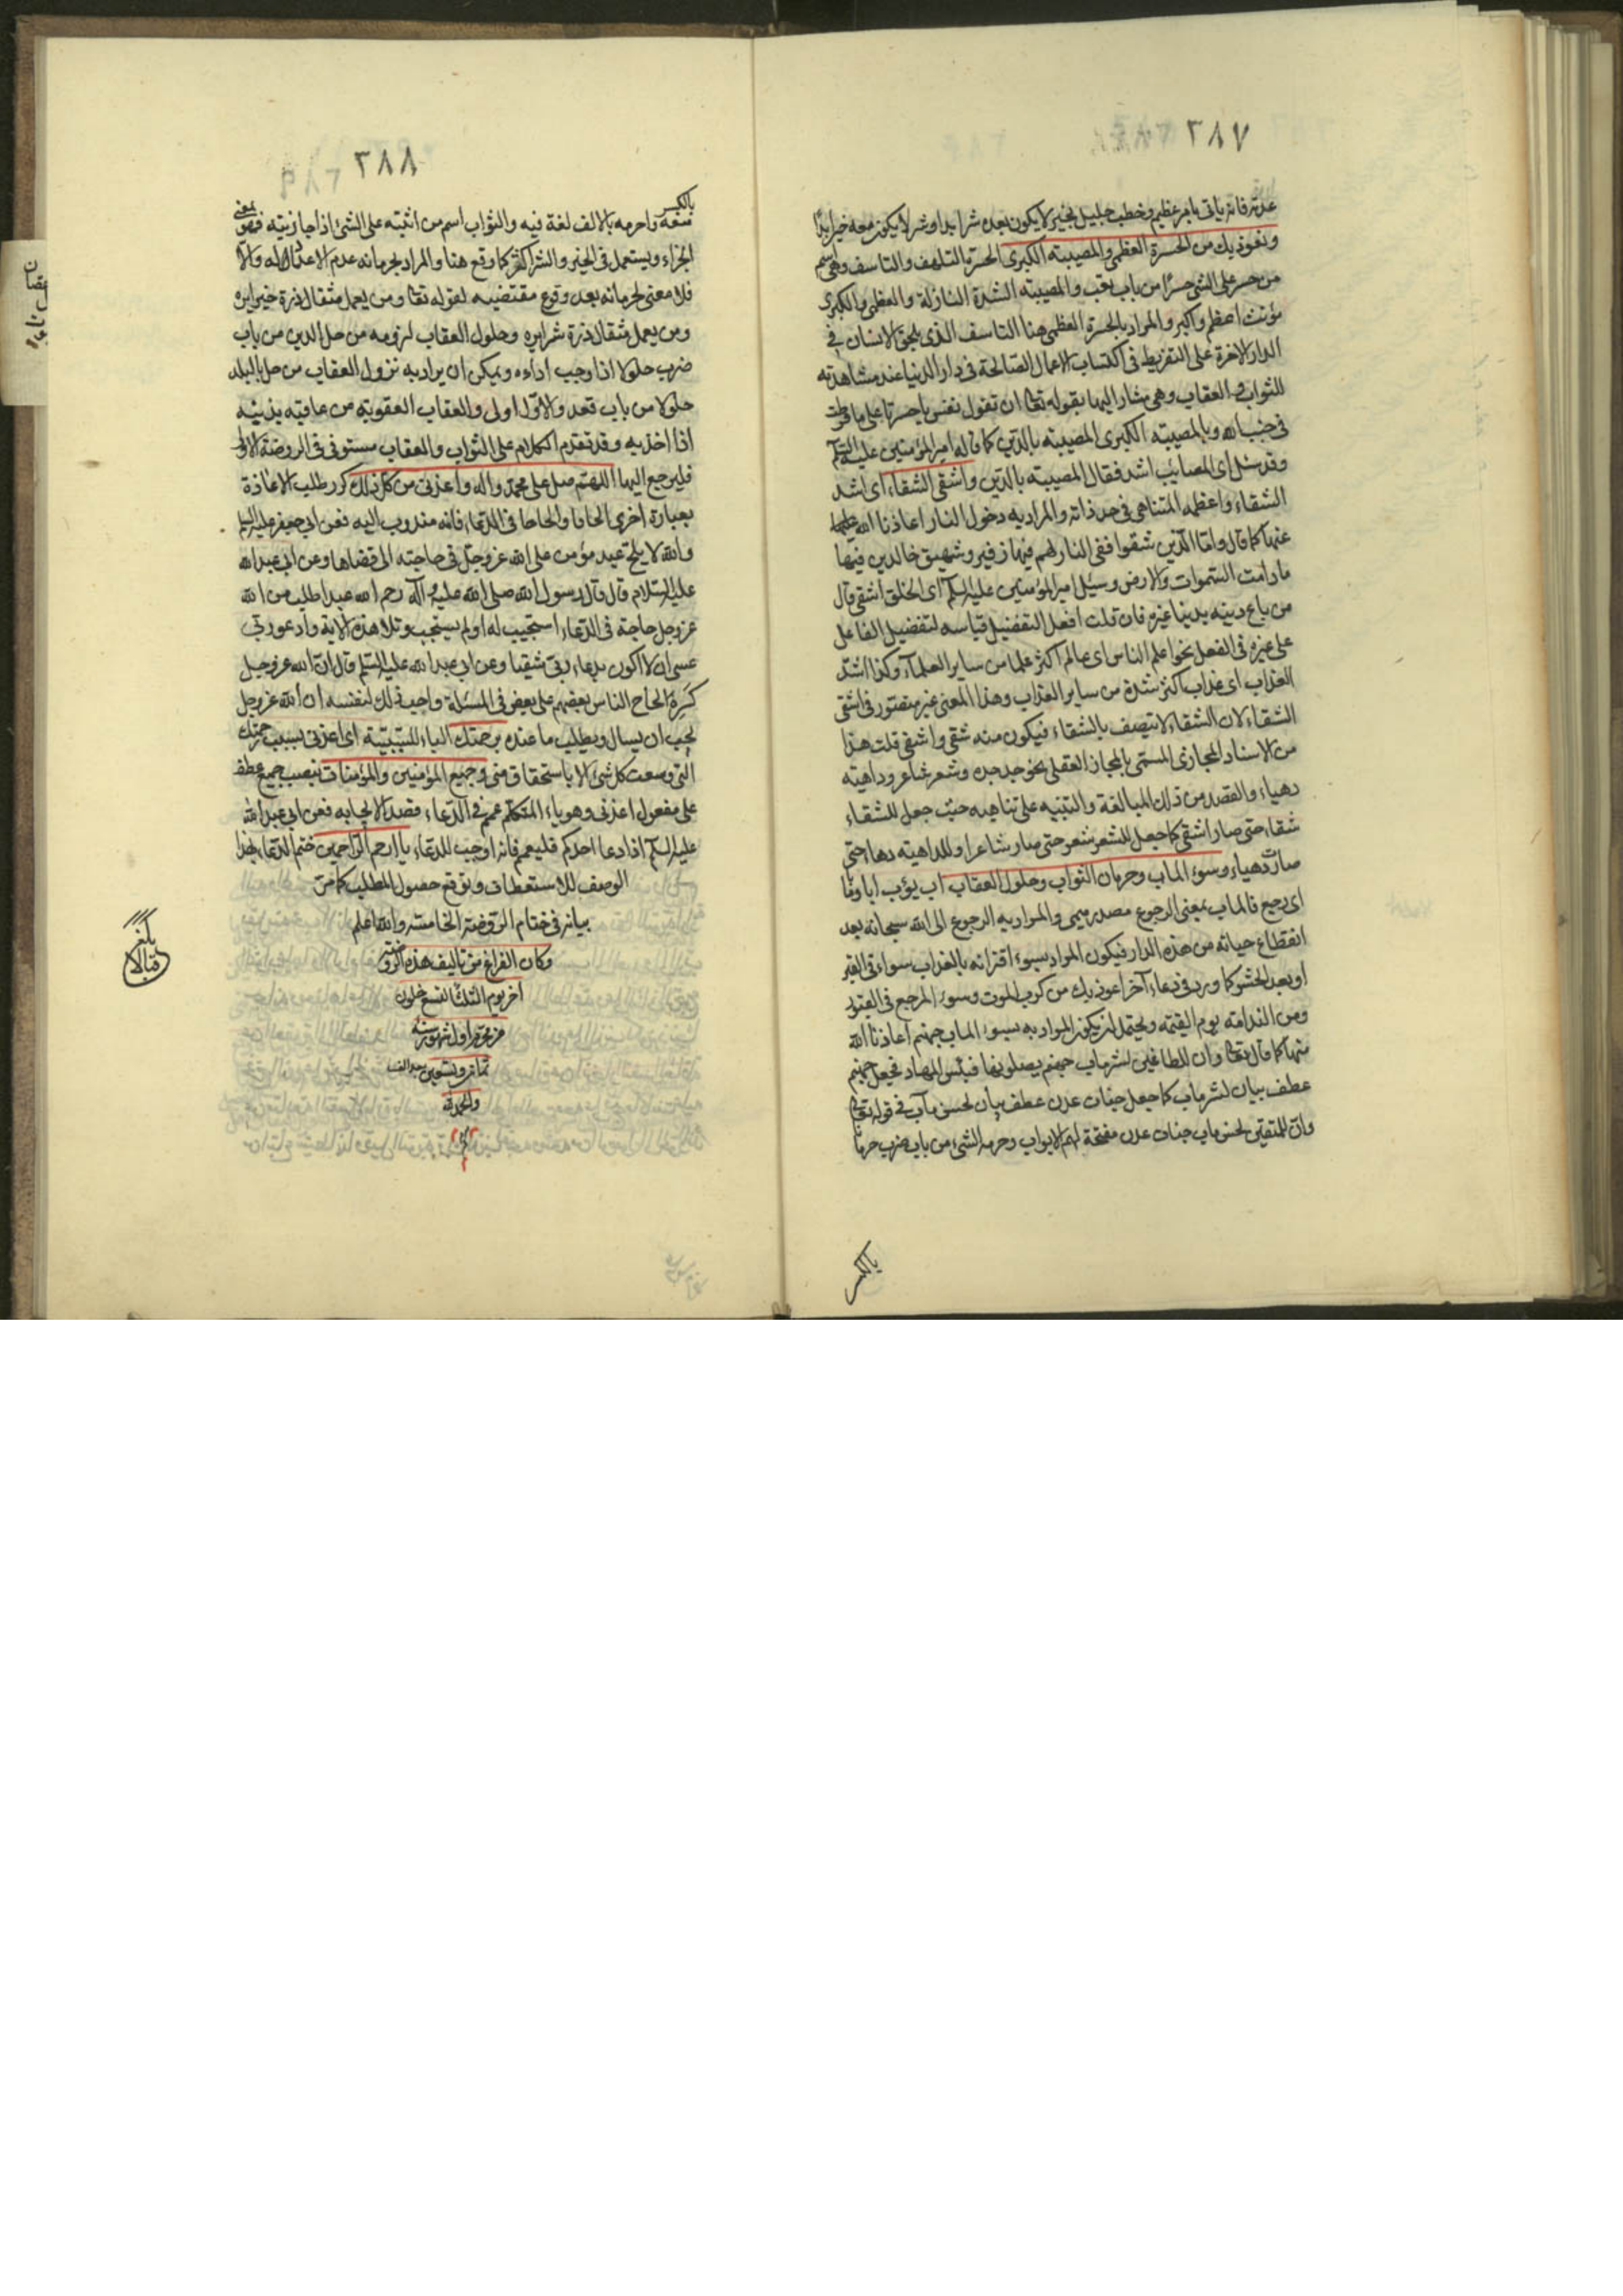 ٢٨٧
عدته فانه ياتى بامر عظيم وخطب جليل بخير لا يكون بعده شر ابدا وشر لا يكون معه خير ابدا
ونعوذ بك من الحسرة العظمى والمصيبته الكبرى الحسرة التلهف والتاسف وهى اسم
من حسر على الشئ حسرًا من باب تعب والمصيبته الشدة النازلة والعظمى والكبرى
مؤنث اعظم واكبر والمراد بالحسرة العظمى هنا التاسف الذى يلحق الانسان فى
الدار الاخرة على التفريط فى اكتساب الاعمال الصالحة فى دار الدنيا عند مشاهدته
للثواب والعقاب وهى مشار اليها بقوله تعا ان تقول نفس يا حسرتا على ما فرطت
فى جنب الله وبالمصيبته الكبرى المصيبته بالدين كما قاله امير المؤمنين عليه السلم
وقد سئل اى المصائب اشد فقال المصيبته بالدين واشقى الشقاء اى اشد
الشقاء واعظمه المتناهى فى حد ذاته والمراد به دخول النار اعاذنا الله
عنها كما قال واما الذين شقوا ففى النار لهم فيها زفير وشهيق خالدين فيها
ما دامت السموات والارض وسئل امير المؤمنين عليه السلم اى الخلق اشقى قال
من باع دينه بدنيا غيره فان قلت افعل التفضيل قياسه لتفضيل الفاعل
على غيره فى الفعل نحو اعلم الناس اى عالم اكثر علما من ساير العلماء وكذا اشد
العذاب اى عذاب اكثر شدة من ساير العذاب وهذا المعنى غير متصور فى اشقى
الشقاء لان الشقاء لا يتصف بالشقاء فيكون منه شقى واشقى قلت هذا
من الاسناد المجازى المسمى بالمجاز العقلى نحو جد جده وشعر شاعر وداهيته
دهياء والقصد من ذلك المبالغة والتنبيه على تناهيه حيث جعل للشقاء
شقاء حتى صار اشقى كما جعل للشعر شعر حتى صار شاعرا وللداهيته دهاء حتى
صارت دهياء وسوء الماب وحرمان الثواب وحلول العقاب اب يؤب ابا وما
اى رجع فالماب بمعنى الرجوع مصدر ميمى والمراد به الرجوع الى الله سبحانه بعد
انقطاع حياته من هذه الدار فيكون المراد بسوء اقترانه بالعذاب سواء فى القبر
او بعد الحشر كما ورد فى دعاء آخر اعوذ بك من كرب الموت وسوء المرجع فى القبور
ومن الندامته يوم القيمته ويحتمل ان يكون المراد به بسوء الماب جهنم اعاذنا الله
منها كما قال تعا وان للطاغين لشر ماب جهنم يصلونها فبئس المهاد فجعل جهنم
عطف بيان لشر ماب كما جعل جنات عدن عطف بيان لحسن مآب فى قوله تعا
وان للمتقين لحسن ماب جنات عدن مفتحة لهم الابواب وحرمه الشئ من باب ضرب حرما
بالكسر
٢٨٨
بالكسر
منعه واحرمه بالالف لغة فيه والثواب اسم من اثبته على الشئ اذا جازيته فهو بمعنى
الجزاء ويستعمل فى الخير والشر اكثر كما وقع هنا والمراد بحرمانه عدم الاعداد له والا
فلا معنى لحرمانه بعد وقوع مقتضيه لقوله تعا ومن يعمل مثقال ذرة خيرا يره
ومن يعمل مثقال ذرة شرا يره وحلول العقاب لزومه من حل الدين من باب
ضرب حلولا اذا وجب اداءه ويمكن ان يراد به نزول العقاب من حل بالبلد
حلولا من باب قعد والاول اولى والعقاب العقوبته من عاقبته بذنبه
اذا اخذ به وقد تقدم الكلام على الثواب والعقاب مستوفى فى الروضة الاولى
فليرجع اليها اللهم صل على محمد واله واعذنى من كل ذلك كرر طلب الاعاذة
بعبارة اخرى الحافا والحاحا فى الدعاء فانه مندوب اليه فعن ابى جعفر عليه السلم
والله لا يلح عبد مؤمن على الله عز وجل فى حاجته الا قضاها وعن ابى عبد الله
عليه السلام قال قال رسول الله صلى الله عليه وآله رحم الله عبدا طلب من الله
عز وجل حاجة فى الدعاء استجيب له او لم يستجب وتلا هذه الاية وادعو ربى
عسى ان لا اكون بدعاء ربى شقيا وعن ابى عبد الله عليه السلم قال ان الله عز وجل
كره الحاح الناس بعضهم على بعض فى المسئلة واحب ذلك لنفسه ان الله عز وجل
يحب ان يسال ويطلب ما عنده برحمتك الباء للسببيتة اى اعذنى بسبب رحمتك
التى وسعت كل شئ لا باستحقاق منى وجميع المؤمنين والمؤمنات بنصب جميع عطف
على مفعول اعذنى وهو ياء المتكلم عمم فى الدعاء قصد الاجابه فعن ابى عبد الله
عليه السلم اذا دعا احدكم فليعمم فانه اوجب للدعاء يا ارحم الراحمين ختم الدعاء بهذا
الوصف للاستعطاف وتوقع حصول المطلب كما مر
بيانه فى ختام الروضة الخامسته والله اعلم
وكان الفراغ من تاليف هذه الروضته
آخر يوم الثلثا لتسع خلون
من محرم اول شهور سنه
ثمان وتسعين بعد الف
والحمد لله
بلغ
قبالا